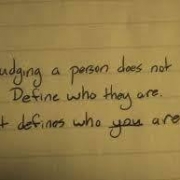 udging a person does not
Define who they are.
t defines who you are